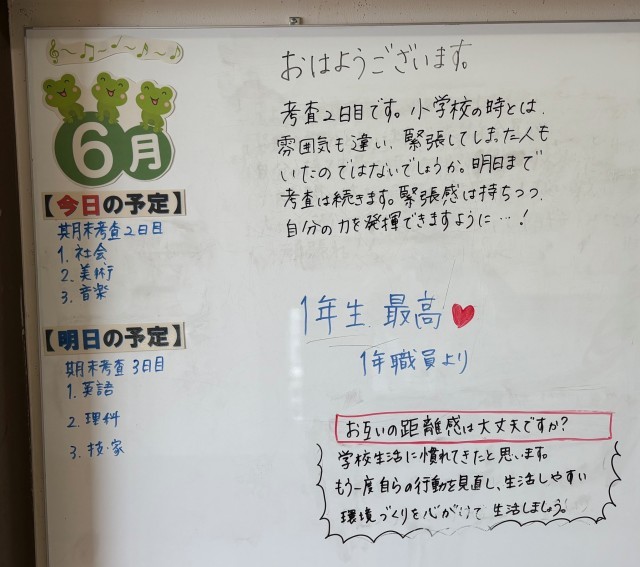 6月
【今日の予定】
期末考査2日目
1. 社会
2. 美術
3. 音楽
【明日の予定】
期末考査3日目
1. 英語
2. 理科
3. 技・家
おはようございます。
考査2日目です。小学校の時とは、
雰囲気も違い、緊張してしまった人も
いたのではないでしょうか。明日まで
考査は続きます。緊張感は持ちつつ、
自分の力を発揮できますように…!
1年生 最高
1年職員より
お互いの距離感は大丈夫ですか?
学校生活に慣れてきたと思います。
もう一度自らの行動を見直し、生活しやすい
環境づくりを心がけて生活しましょう。